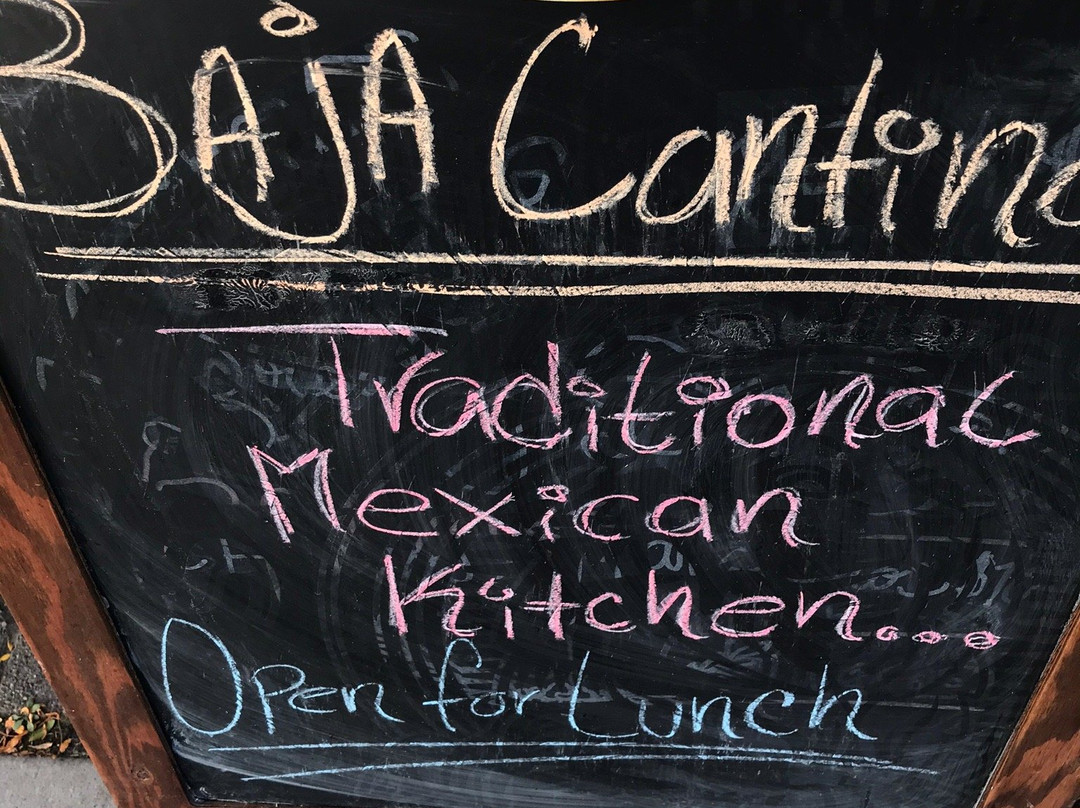 BAJA Cantina
Traditional
Mexican
Kitchen...
Open for Lunch